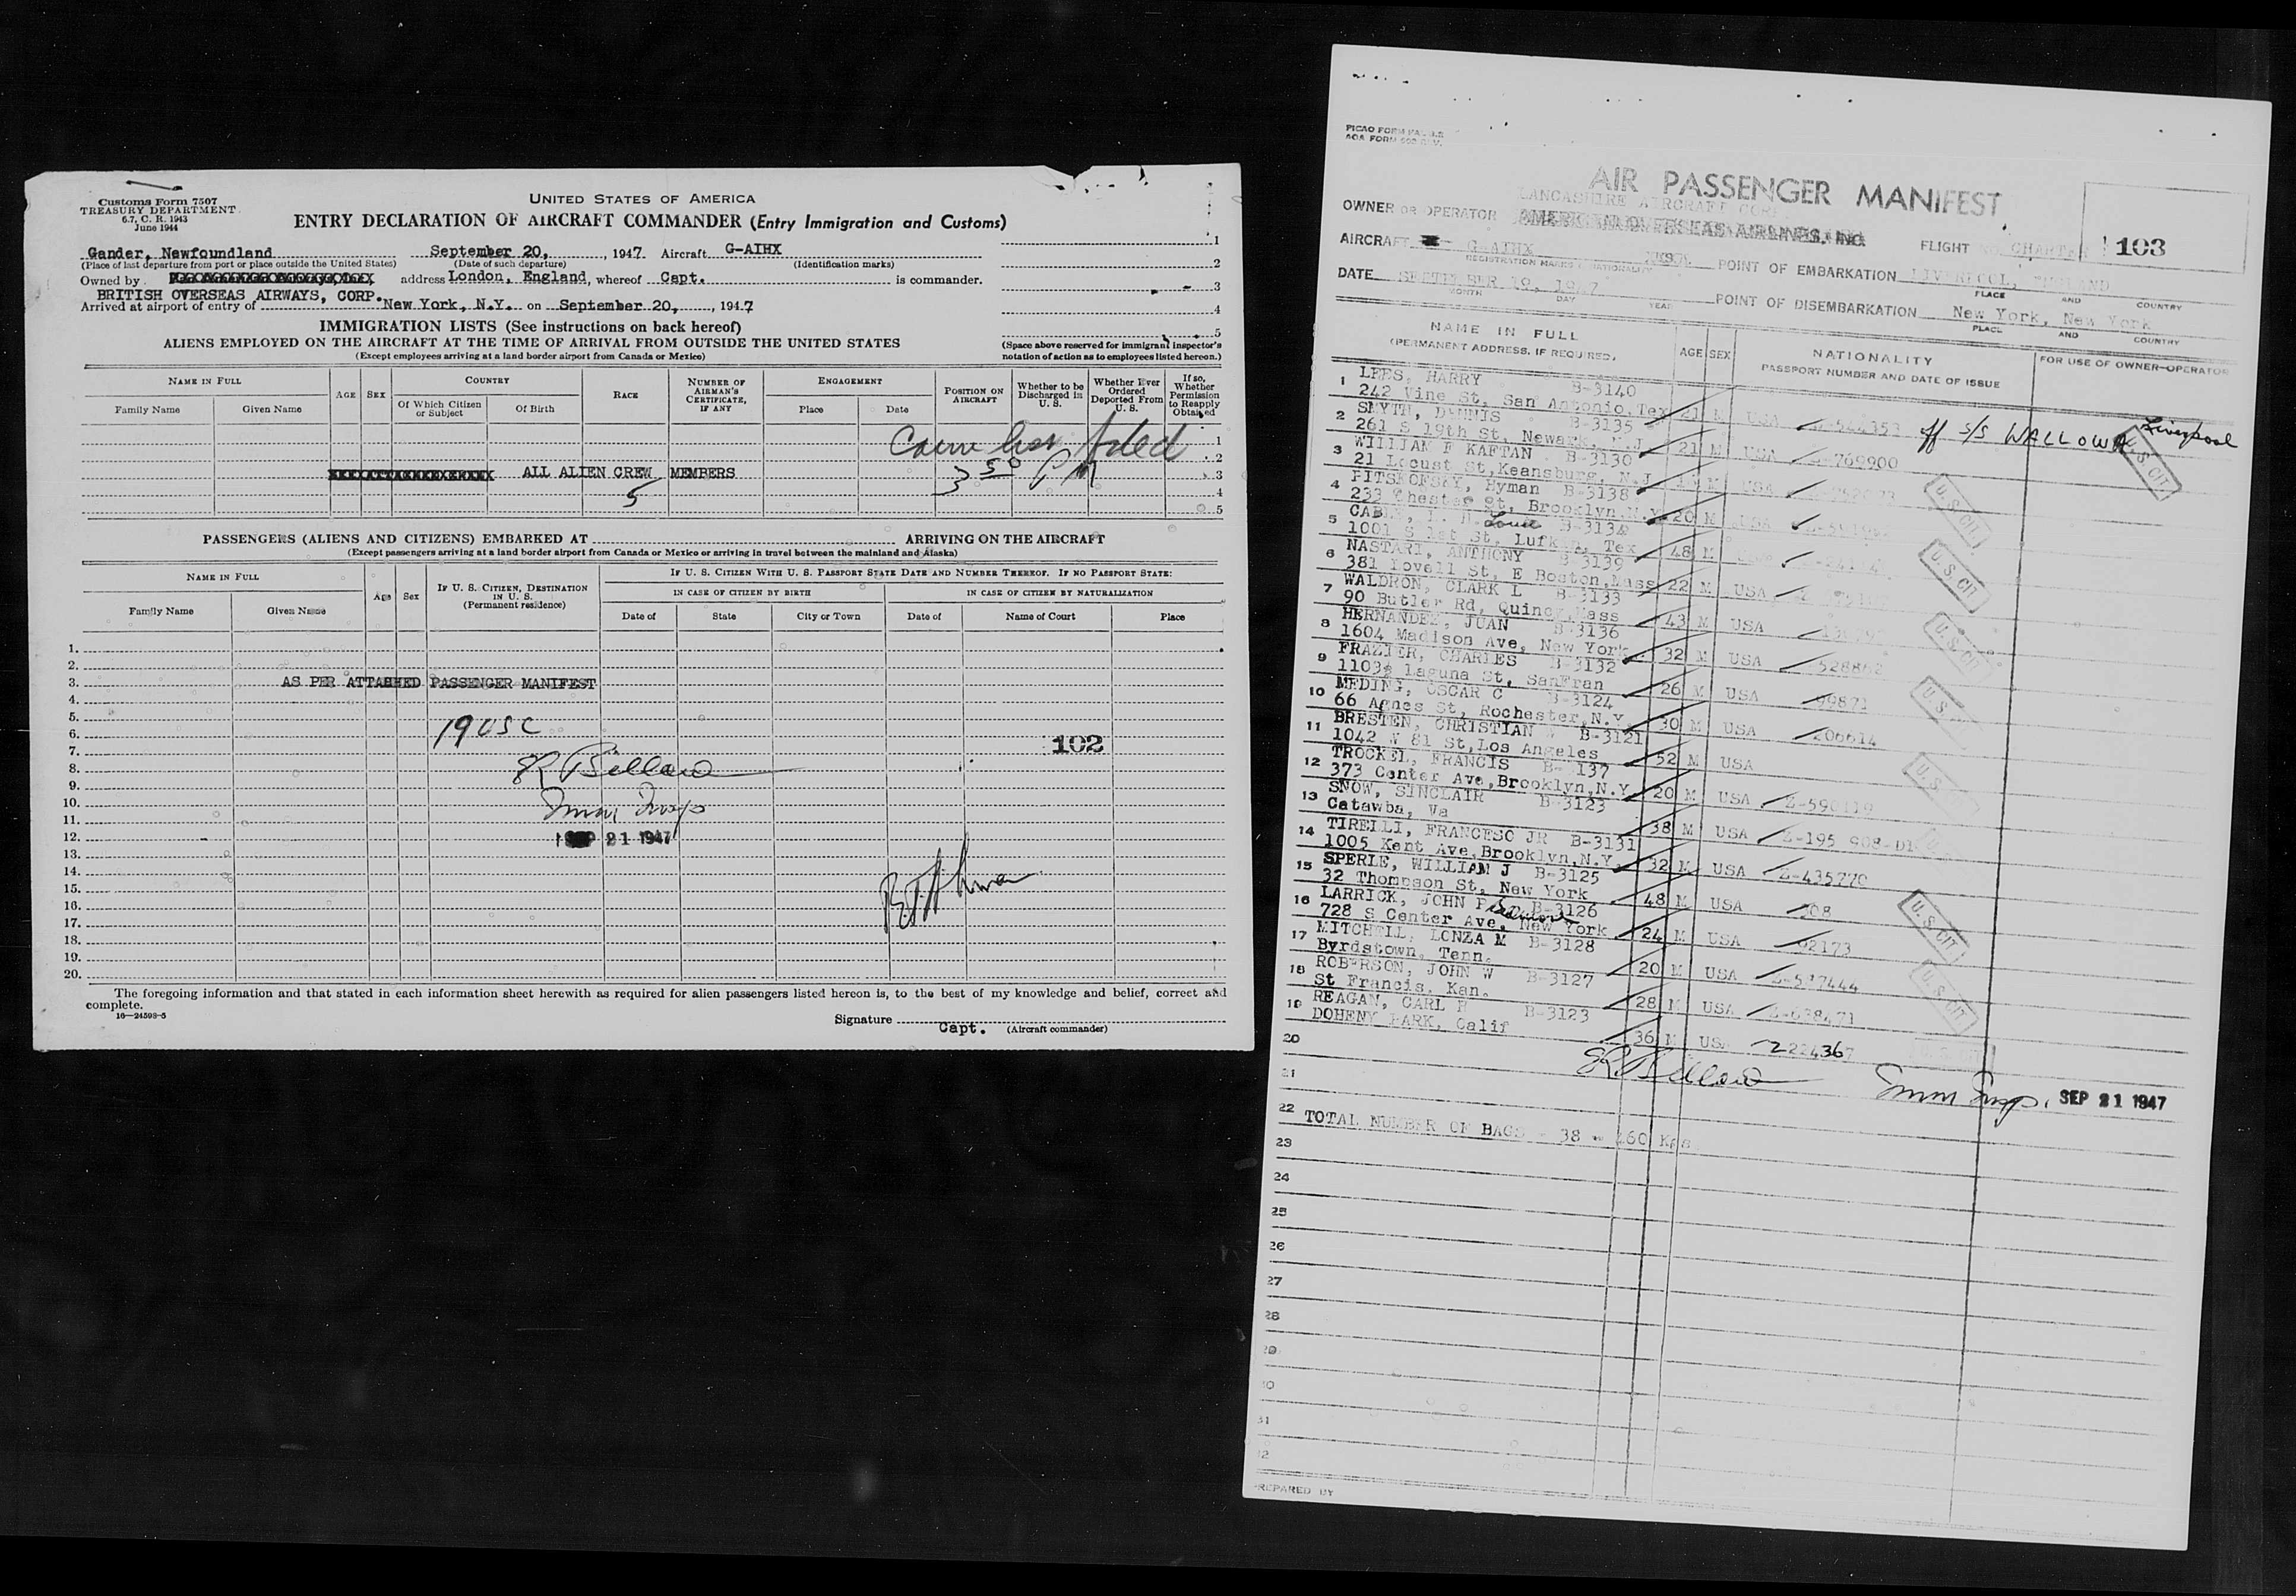 Customs Form 7507
TREASURY DEPARTMENT
6.7, C. R. 1943
June 1944
UNITED STATES OF AMERICA
ENTRY DECLARATION OF AIRCRAFT COMMANDER (Entry Immigration and Customs)
Gander, Newfoundland September 20, , 1947 Aircraft G-AIHX
(Place of last departure from port or place outside the United States) (Date of such departure) (Identification marks)
Owned by address London, England, whereof Capt. is commander.
BRITISH OVERSEAS AIRWAYS, CORP.
Arrived at airport of entry of New York, N.Y. on September 20, , 1947
IMMIGRATION LISTS (See instructions on back hereof)
ALIENS EMPLOYED ON THE AIRCRAFT AT THE TIME OF ARRIVAL FROM OUTSIDE THE UNITED STATES
(Except employees arriving at a land border airport from Canada or Mexico)
1
2
3
4
5
(Space above reserved for immigrant inspector's
notation of action as to employees listed hereon.)
NAME IN FULL
Family Name Given Name
AGE SEX
COUNTRY
Of Which Citizen or Subject Of Birth
RACE
NUMBER OF AIRMAN'S CERTIFICATE, IF ANY
ENGAGEMENT
Place Date
POSITION ON AIRCRAFT
Whether to be Discharged in U. S.
Whether Ever Ordered Deported From U. S.
If so, Whether Permission to Reapply Obtained
1
2
ALL ALIEN CREW MEMBERS 3
5 4
5
3 50 PM
PASSENGERS (ALIENS AND CITIZENS) EMBARKED AT ARRIVING ON THE AIRCRAFT
(Except passengers arriving at a land border airport from Canada or Mexico or arriving in travel between the mainland and Alaska)
NAME IN FULL
Family Name Given Name
Age Sex
IF U. S. CITIZEN, DESTINATION IN U. S.
(Permanent residence)
IF U. S. CITIZEN WITH U. S. PASSPORT STATE DATE AND NUMBER THEREOF. IF NO PASSPORT STATE:
IN CASE OF CITIZEN BY BIRTH IN CASE OF CITIZEN BY NATURALIZATION
Date of State City or Town Date of Name of Court Place
1.
2.
3. AS PER ATTACHED PASSENGER MANIFEST
4.
5.
6. 19 USC
7. 102
8.
9.
10.
11.
12. SEP 21 1947
13.
14.
15.
16.
17.
18.
19.
20.
The foregoing information and that stated in each information sheet herewith as required for alien passengers listed hereon is, to the best of my knowledge and belief, correct and
complete.
16—24598-5
Signature
Capt. (Aircraft commander)
AIR PASSENGER MANIFEST
LANCASHIRE AIRCRAFT CORP
OWNER OR OPERATOR AMERICAN OVERSEAS AIRLINES, INC.
FLIGHT CHARTER 103
AIRCRAFT G-AIHX
REGISTRATION MARKS NATIONALITY
POINT OF EMBARKATION LIVERPOOL, ENGLAND
PLACE AND COUNTRY
DATE SEPTEMBER 19, 1947
MONTH DAY YEAR
POINT OF DISEMBARKATION New York, New York
PLACE AND COUNTRY
NAME IN FULL
(PERMANENT ADDRESS, IF REQUIRED)
AGE SEX
NATIONALITY
PASSPORT NUMBER AND DATE OF ISSUE
FOR USE OF OWNER-OPERATOR
1 LEES, HARRY B-3140
242 Vine St, San Antonio, Tex 21 M USA off S/S WALLOWA Liverpool
2 SMYTH, DENNIS B-3135
261 S 19th St, Newark, N.J. 21 M USA Z-769900
3 WILLIAM F KAFTAN B-3130
21 Locust St, Keansburg, N.J. M USA
4 PITSKOFSKY, Hyman B-3138
233 Chester St, Brooklyn, N.Y. 20 M USA
5 CABLE, L. H. Louie B-3134
1001 S 1st St, Lufkin, Tex 48 M
6 NASTARI, ANTHONY B-3139
381 Lovell St, E Boston, Mass 22 M USA
7 WALDRON, CLARK L B-3133
90 Butler Rd, Quincy, Mass 43 M USA
8 HERNANDEZ, JUAN B-3136
1604 Madison Ave, New York 32 M USA
9 FRAZIER, CHARLES B-3132
1103½ Laguna St, SanFran 26 M USA 99871
10 MEDING, OSCAR C B-3124
66 Agnes St, Rochester, N.Y. 30 M USA 206614
11 BRESTEN, CHRISTIAN B-3121
1042 W 81 St, Los Angeles 52 M USA
12 TROCKEL, FRANCIS B-3137
373 Center Ave, Brooklyn, N.Y. 20 M USA
13 SNOW, SINCLAIR B-3123
Catawba, Va 38 M USA Z-195 908-D1
14 TIRELLI, FRANCESO JR B-3131
1005 Kent Ave, Brooklyn, N.Y. 32 M USA Z-435770
15 SPERLE, WILLIAM J B-3125
32 Thompson St, New York 48 M USA
16 LARRICK, JOHN P B-3126
728 S Center Ave, New York 24 M USA
17 MITCHELL, LONZA M B-3128
Byrdstown, Tenn. 20 M USA Z-517444
18 ROBERSON, JOHN W B-3127
St Francis, Kan. 28 M USA Z-638471
19 REAGAN, CARL R B-3123
DOHENY PARK, Calif 36 M USA 224367
U. S. CIT
U. S. CIT
U. S. CIT
U. S. CIT
U. S. CIT
U. S. CIT
20
21
SEP 21 1947
22 TOTAL NUMBER OF BAGS - 38 - 460 Kgs
23
24
25
26
27
28
29
30
31
32
PREPARED BY